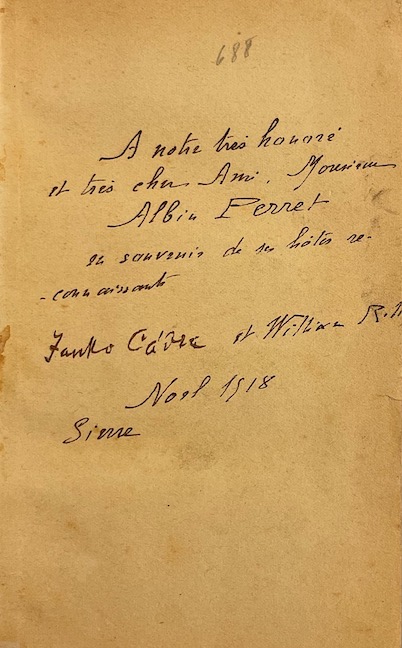 688
A notre très honoré
et très cher Ami, Monsieur
Albin Perret
en souvenir de ses hôtes re-
-connaissants
Janko Cádra et William R.
Noël 1918
Sierre